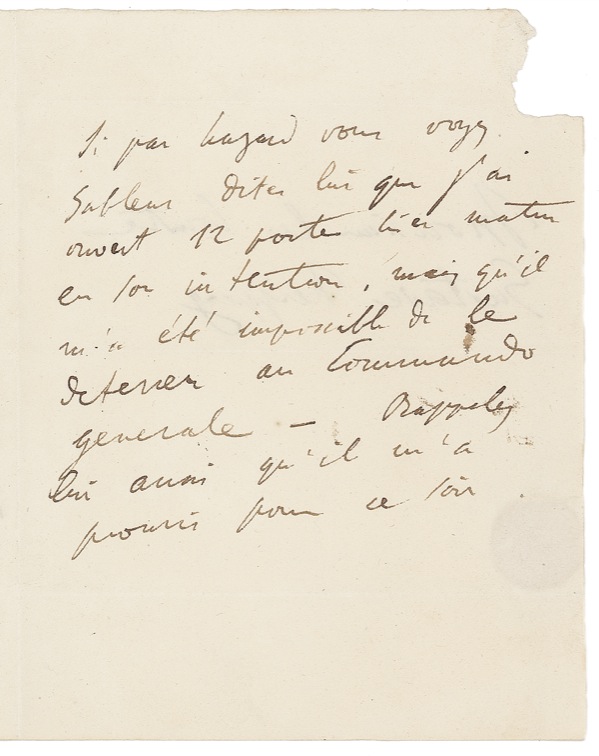 Si par hazard vous voyez
Sableur dites lui que j'ai
ouvert 12 portes hier matin
en son intention, mais qu'il
m'a été impossible de le
deterrer au Commando
generale — Rappelez
lui aussi qu'il m'a
promis pour ce soir.